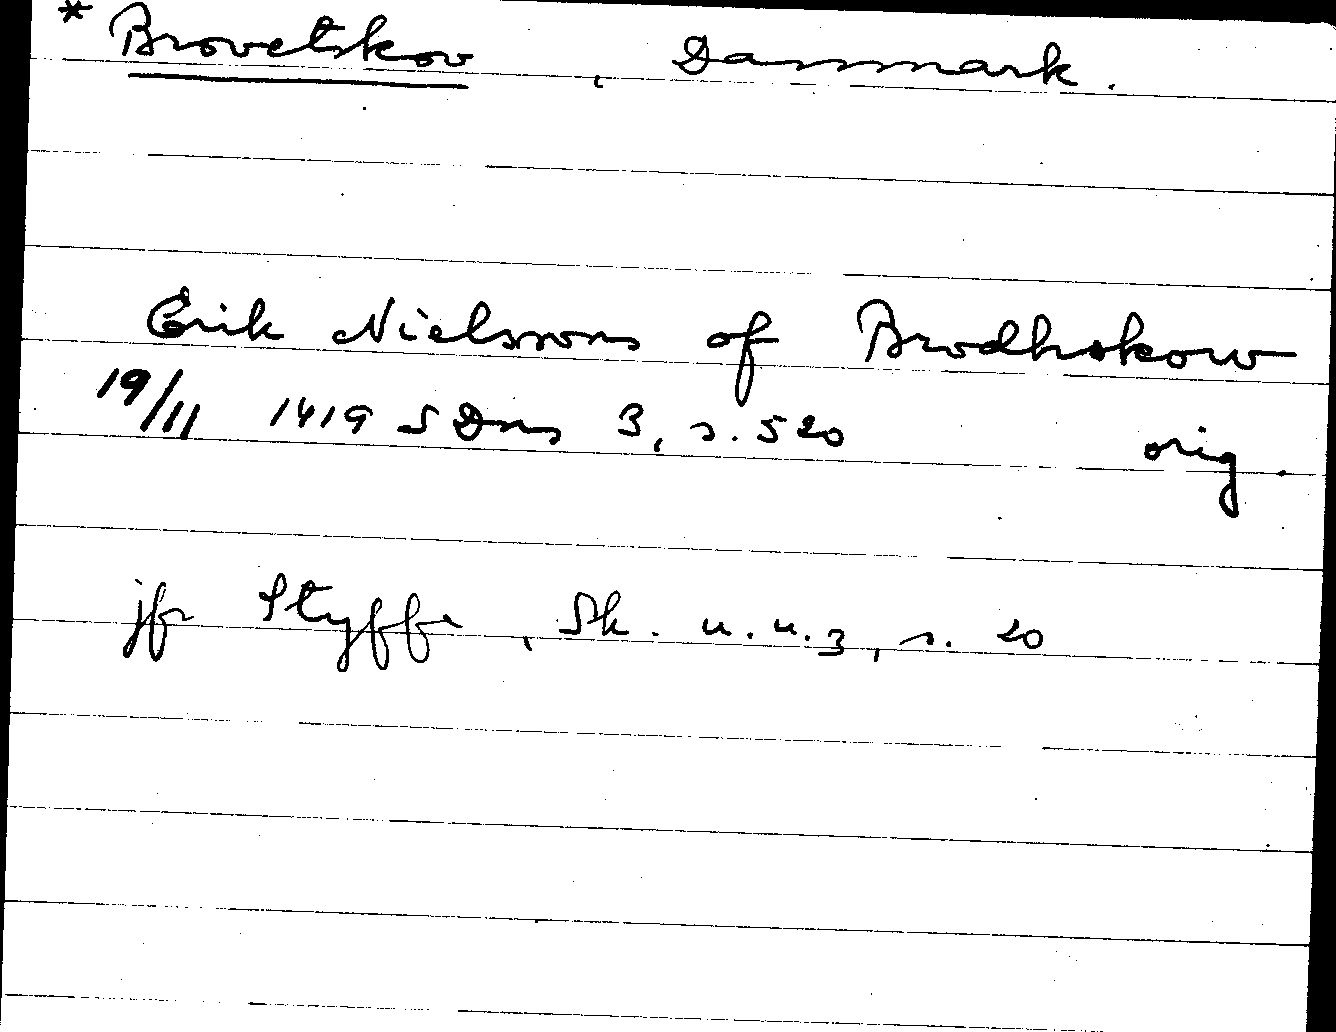 * Brovetskov , Danmark.
Erik Nielssons of Brodhskow
19/11 1419 SDns 3, s. 520 orig.
jfr Styffe, Sk. u. u. 3, s. 20